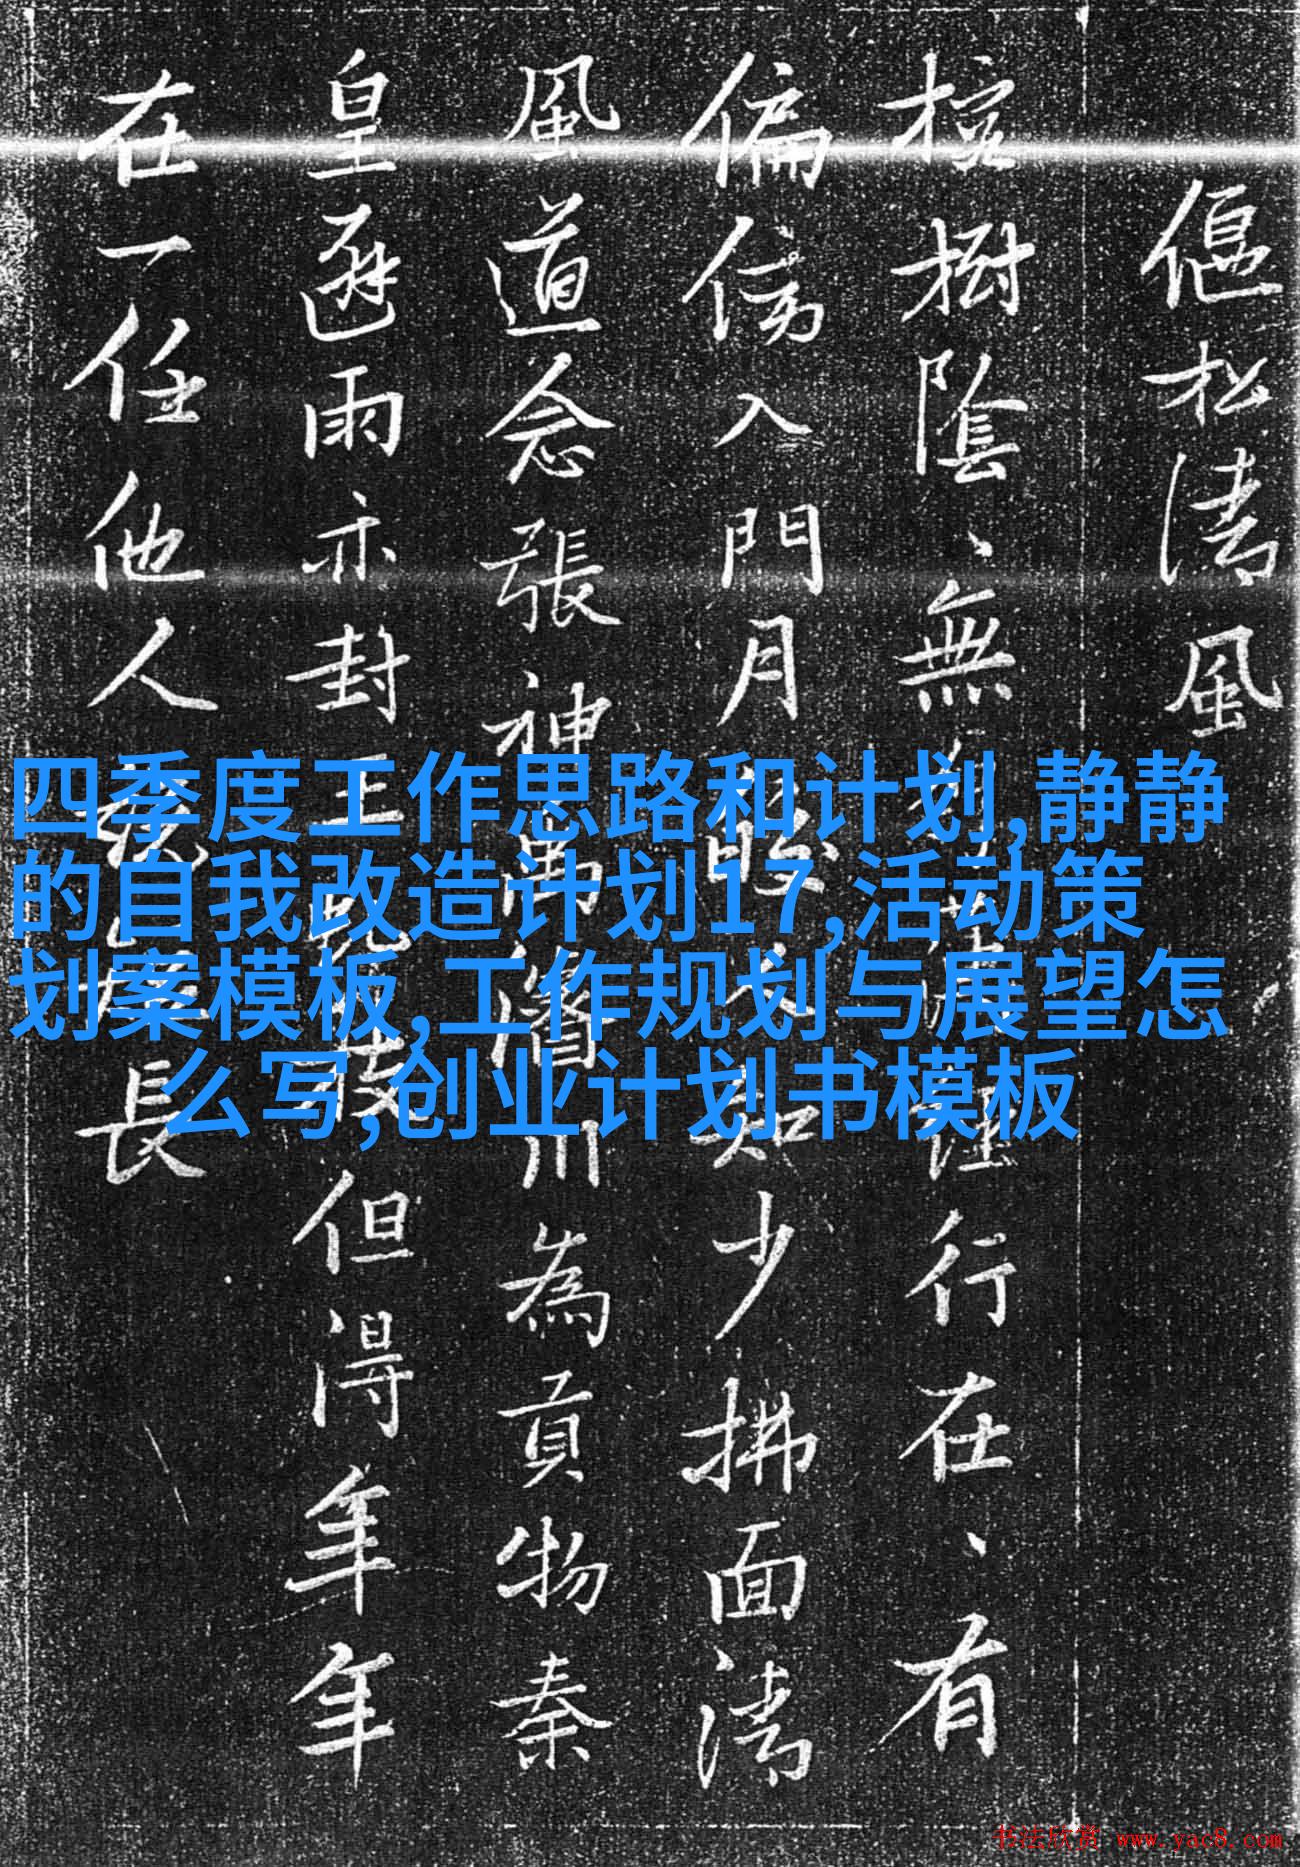 偃松清風
樹陰、無行在、有
偏傍入門月人知少拂面清
風道念張神禹濟川為貢物秦
皇避雨亦封王但得年年
在一任他人長
四季度工作思路和计划,静静
的自我改造计划17,活动策
划案模板,工作规划与展望怎
么写,创业计划书模板
书法欣赏 www.yac8.com